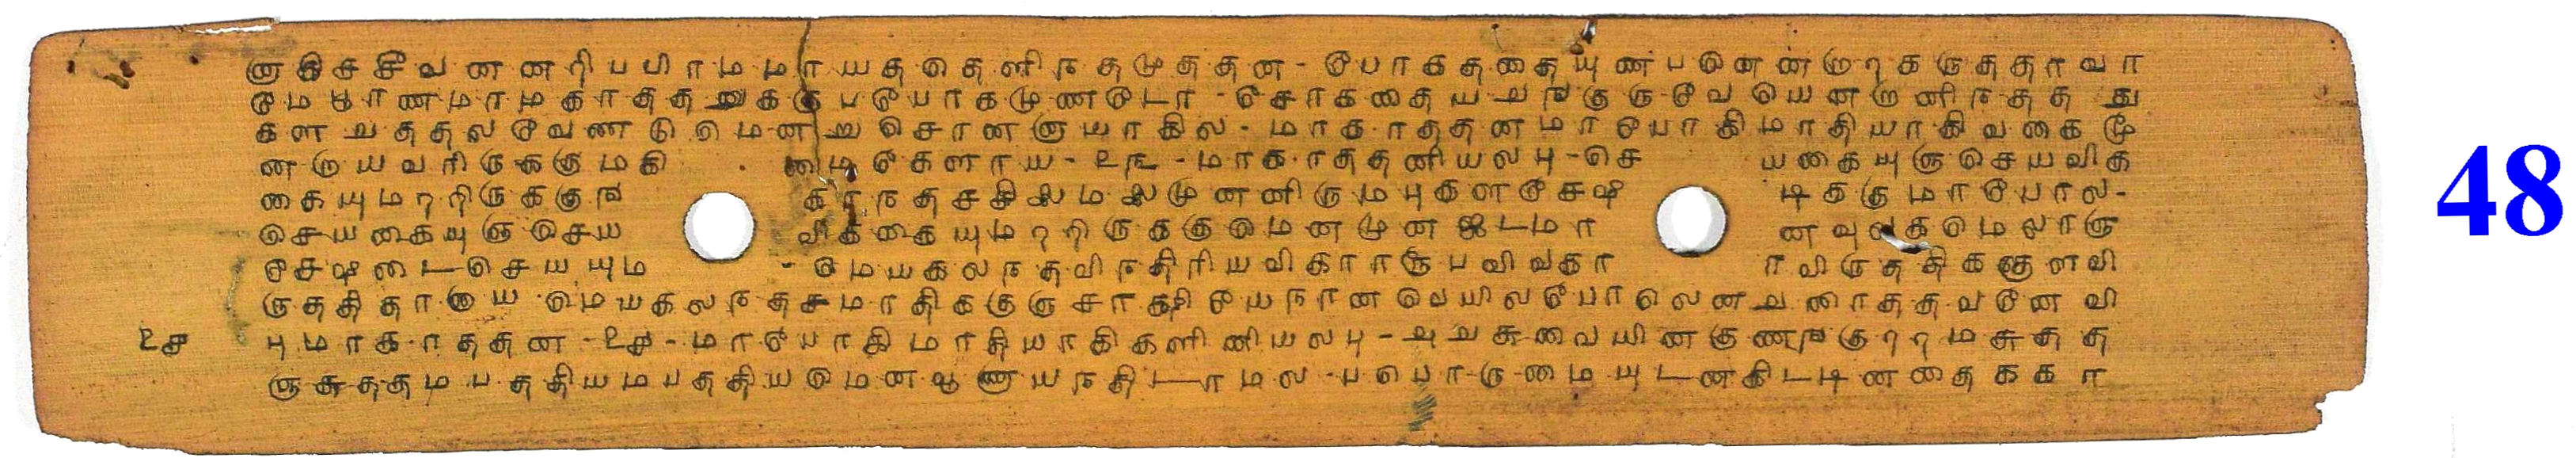 ஞகிசசீவனனரிபபிரமமாயதெளிநதமுததன-போகததையுணபனெனறுரகருததாவா
மெபூரணமாமகாததனுககுபயோகமுணடோ-சோகதையவநகுருவெயெனறனிநதத து
களவததலவேணடுமெனறுசொனஞயாகில-மாகாததனமாயோகிமாதியாகிவகைமூ
ணறாயவரிருககுமகி மைகேளாய-உரு-மாகாததனியலபு-செ யகையுஞசெயவிக
கையுமறறிருககுந காநதசசிலமலமுனனிருமபுகளசேஷ டிககுமாபோல-
செயகையுஞசெய விககையுமறறிருககுமெனமுனஜடமா னவுலகமெலாஞ
சேஷடைசெயயும -மெயகலநதவிநதிரியவிகாரரூபவிவகா ரவிருததிகளுளவி
ருததிதானாய மெயகலநதசமாதிககுஞசாகஷியேயநானவெயிலபோலெனவனைததவனேவி
உச புமாகாததன-உச-மாயோகிமாதியாகிகளினியலபு-அவசுவையினகுணநகுறறமசுதத
ஞசுததமபததியமபததியமெனஎணணுயநதிடாமல-பபொருமையுடனகிடடினதைககா